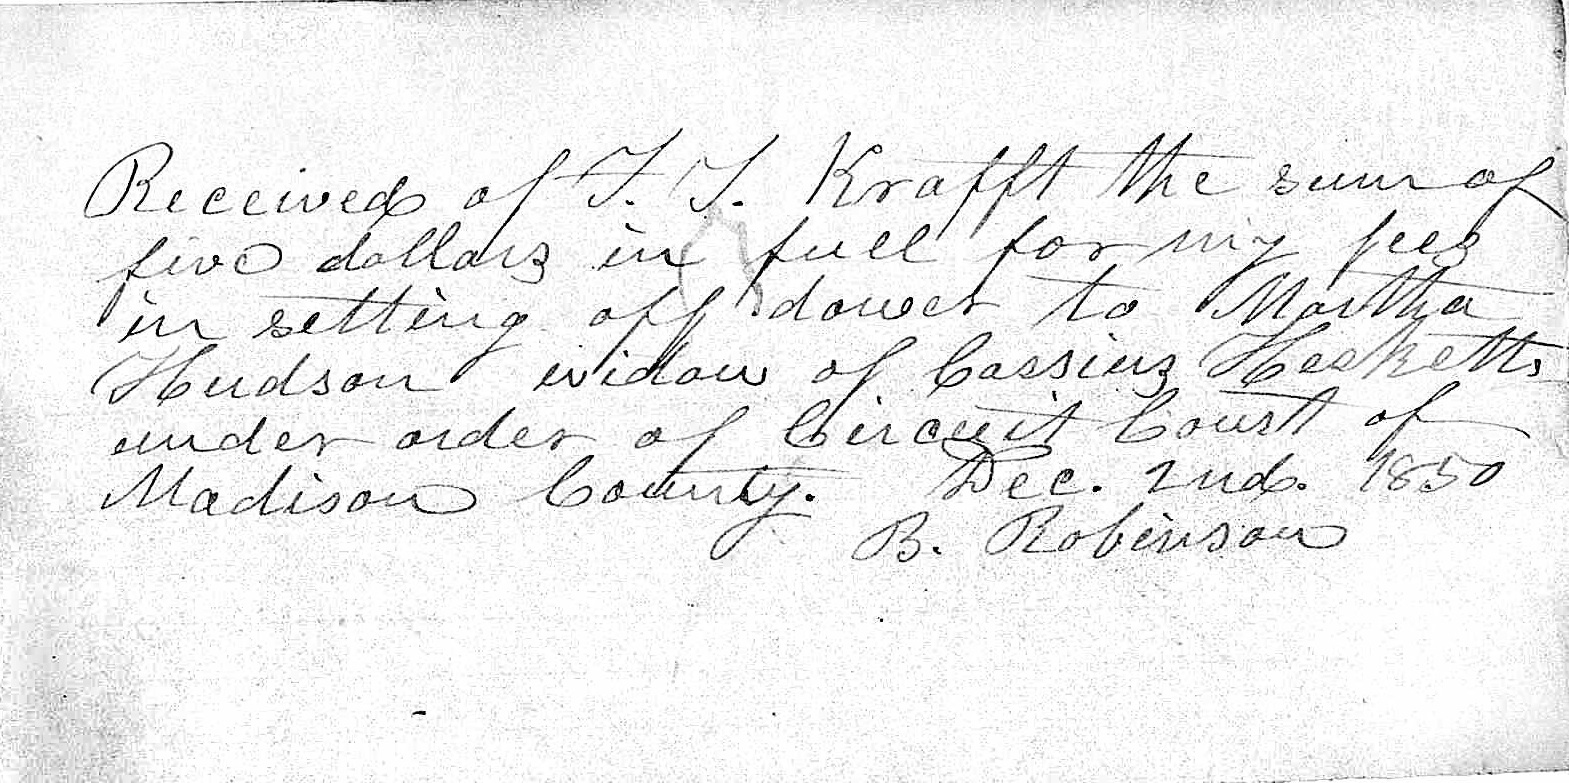 Received of T. T. Krafft the sum of
five dollars in full for my fees
in setting off dower to Martha
Hudson widow of Cassius
under order of Circuit Court of
Madison County. Dec. 2nd. 1850
B. Robinson